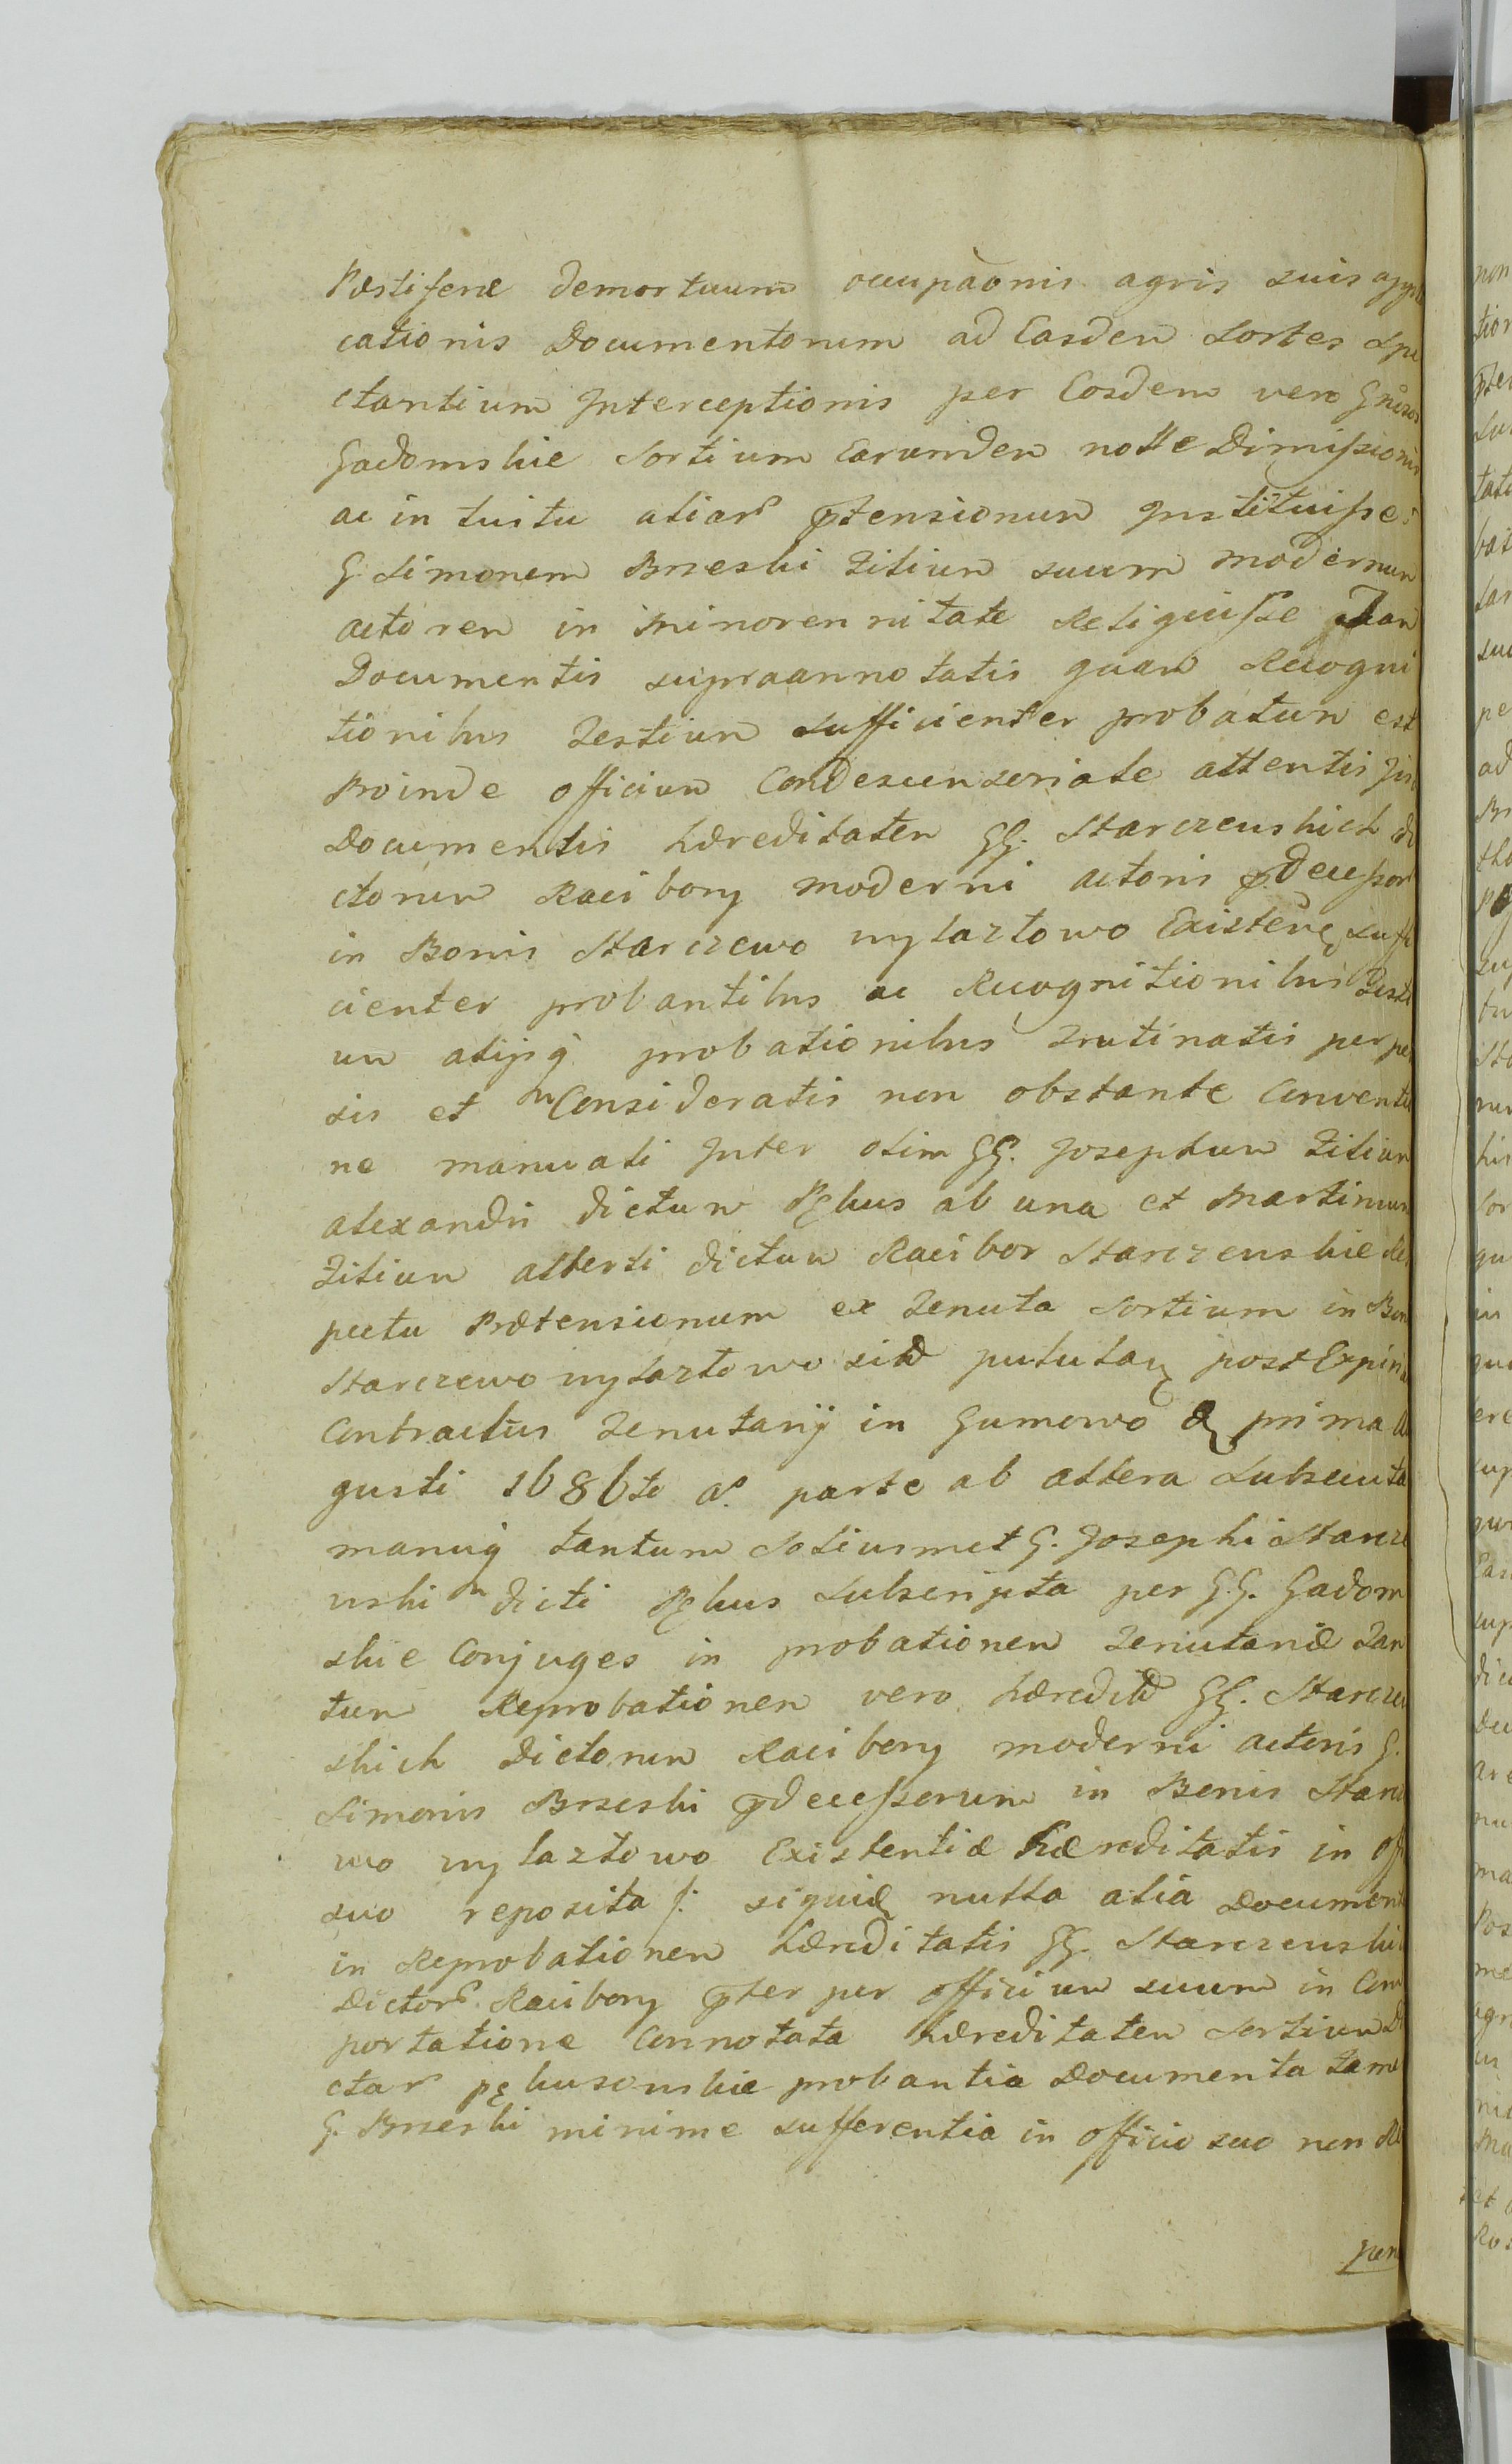 Pestiferæ demortuum occupaõnis agris suis appli
cationis Documentorum ad Easdem Sortes Spe
ctantium Interceptionis per Eosdem vero Gñrosos
Gadomskie Sortium Earumdem nolle Dimissionis
ac in tuitu aliarũ ptensionum Instituisse:
G. Simonem Brzeski Filium suum modernum
actorem in Minorennitate Reliquisse Tam
Documentis supraannotatis quam Recogni
tionibus Testium Sufficienter probatum est
Proinde officium Condescensoriale attentis
Documentis hæreditatem GG. Starczewskich di
ctorum Racibory moderni actoris pdecessor
in Bonis Starczewo wylazłowo Existen Suffi
cienter probantibus ac Recognitionibus Testi
um alijsq probationibus Trutinatis perpen
sis et Consideratis non obstante Conventio
ne manuali Inter olim GG. Josephum Filium
alexandri dictum Pękus ab una et Martinum
Filium alberti dictum Racibor Starczewskie Res
pectu Prætensionum ex Tenuta Sortium in Bonis
Starczewo wylazłowo sibi pululan post Expira
Contractus Tenutarij in Gumowo prima au
gusti 1686to aº parte ab altera Subsecuta
manuq tantum Solius met G. Josephi Starcze
wski dicti Pękus Subscripta per GG. Gadom
skie Conjuges in probationem Tenutariæ Tan
tum Reprobationem vero hæredit GG. Starczew
skich Dictorum Racibory moderni actoris G.
Simonis Brzeski pdecessorum in Bonis Starcze
wo wylazłowo Existentiæ hæreditatis in Offo
suo reposita /: siquid nulla alia Document
in Reprobationem hæreditatis GG. Starczewskich
Dictorũ Racibory pter per officium suum in Com
portatione Connotata hæreditatem Sortium Di
ctarũ pękusowskie probantia Documenta tamen
G. Brzeski minime sufferentia in officio suo non Re